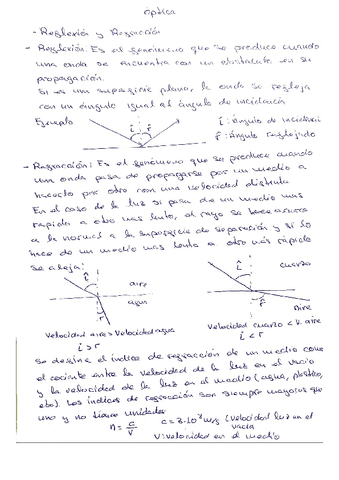 óptica
- Reflexión y Refracción
- Reflexión: Es el fenómeno que se produce cuando
una onda se encuentra con un obstáculo en su
propagación.
Si es una superficie plana, la onda se refleja
con un ángulo igual al ángulo de incidencia
Ejemplo
î: ángulo de incidencia
r: ángulo reflejado
î r
- Refracción: Es el fenómeno que se produce cuando
una onda pasa de propagarse por un medio a
hacerlo por otro con una velocidad distinta
En el caso de la luz si pasa de un medio mas
rapido a otro mas lento, el rayo se hace acerca
a la normal a la superficie de separación y si lo
hace de un medio mas lento a otro más rápido
se aleja:
î
aire
agua
r
î
cuarzo
Aire
r
Velocidad aire > Velocidad agua
î > r
Velocidad cuarzo < v. aire
î < r
Se define el índice de refracción de un medio como
el cociente entre la velocidad de la luz en el vacio
y la velocidad de la luz en el medio (agua, plastico,
etc). Los índices de refracción son siempre mayores que
uno y no tiene unidades
n = c/v c = 3·10⁸ m/s (velocidad luz en el
vacío
v: velocidad en el medio